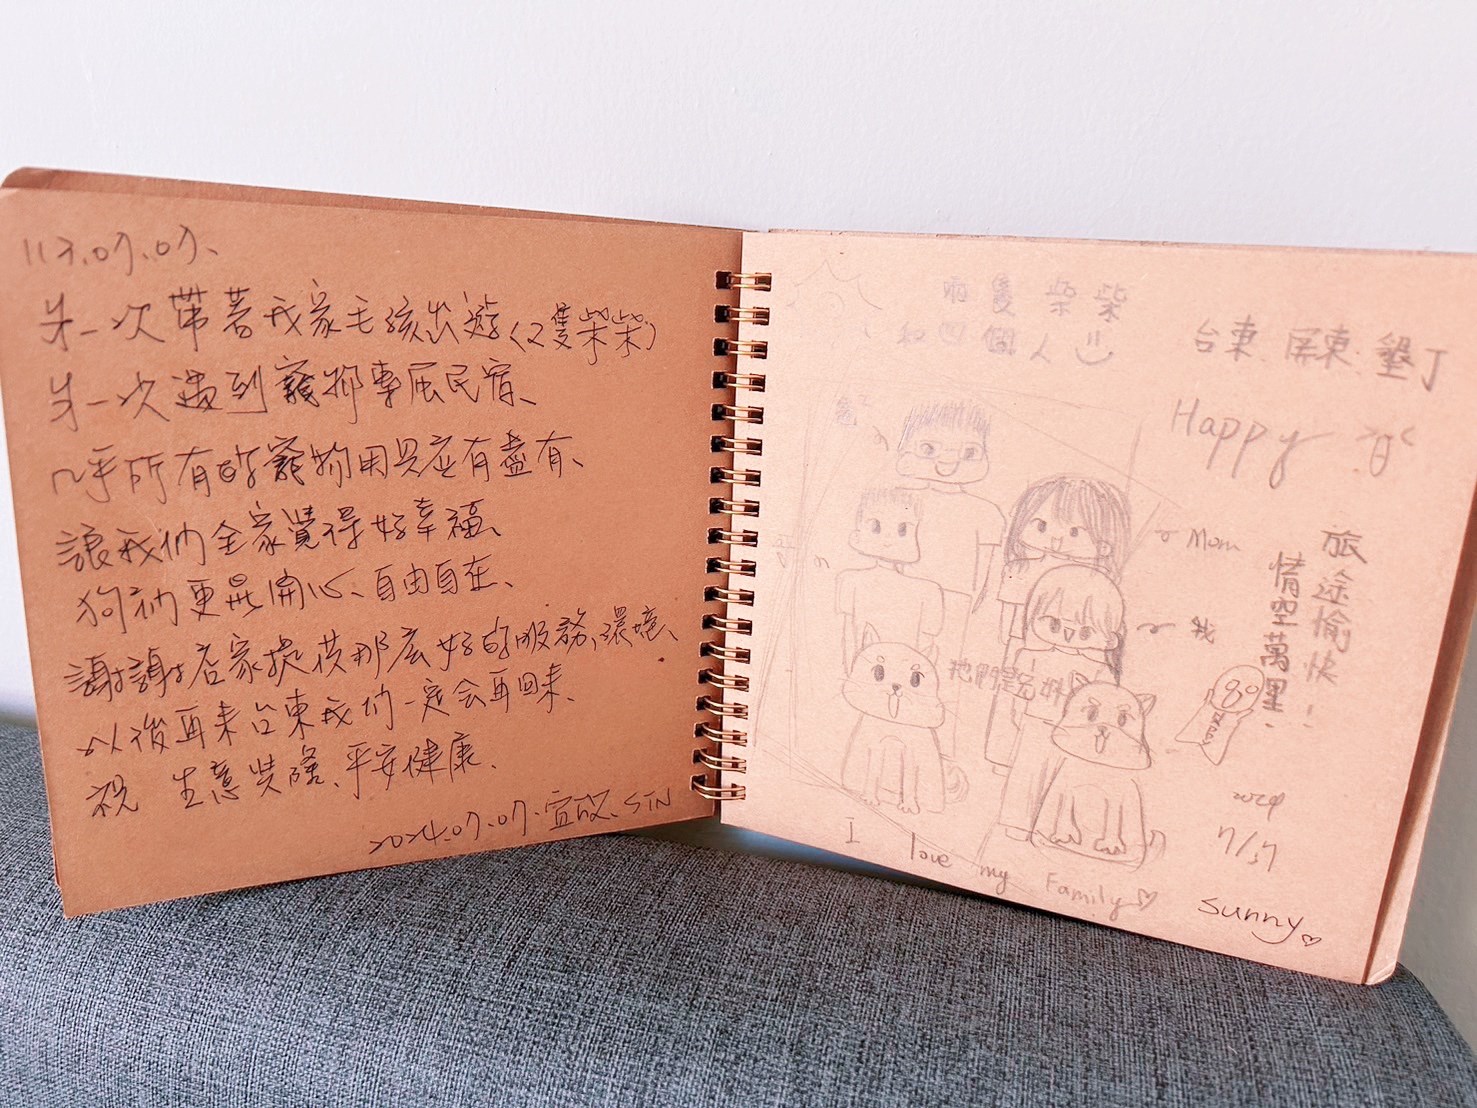 113.07.07、
第一次帶著我家毛孩出遊(2隻柴柴)
第一次遇到寵物專屬民宿、
几乎所有的寵物用具應有盡有、
讓我們全家覺得好幸福、
狗衲更是開心、自由自在、
謝謝店家提供那麼好的服務、環境、
以後再來台東我們一定会再回來、
祝 生意興隆、平安健康、
2024.07.07.宜
SIN
兩隻柴柴
和四個人
台東.屏東.墾丁
Happy
爸
Mom
我
他們是兄妹
旅途愉快!
情空萬里、
2024
7/7
I love my Family
sunny